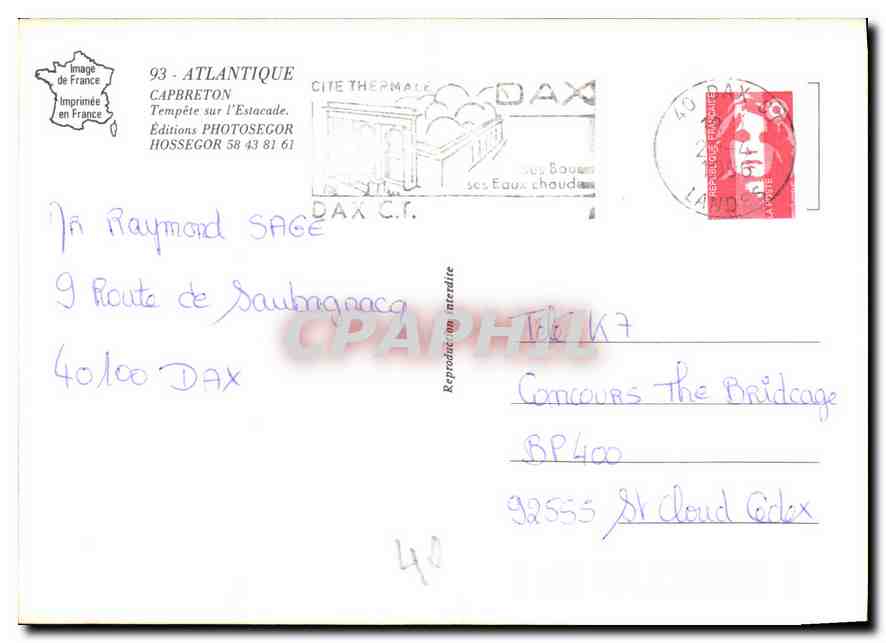 Image
de France
Imprimée
en France
93 - ATLANTIQUE
CAPBRETON
Tempête sur l'Estacade.
Éditions PHOTOSEGOR
HOSSEGOR 58 43 81 61
CITE THERMALE
DAX
ses Boue
ses Eaux chaude
DAX C.T.
40 DAX
LANDES
REPUBLIQUE FRANÇAISE
LA POSTE
Mr Raymond SAGE
9 Route de Saubagnacq
40100 DAX
Reproduction interdite
CPAPHIL
Télé K7
Concours The Bridcage
BP400
92555 St Cloud Cedex
40